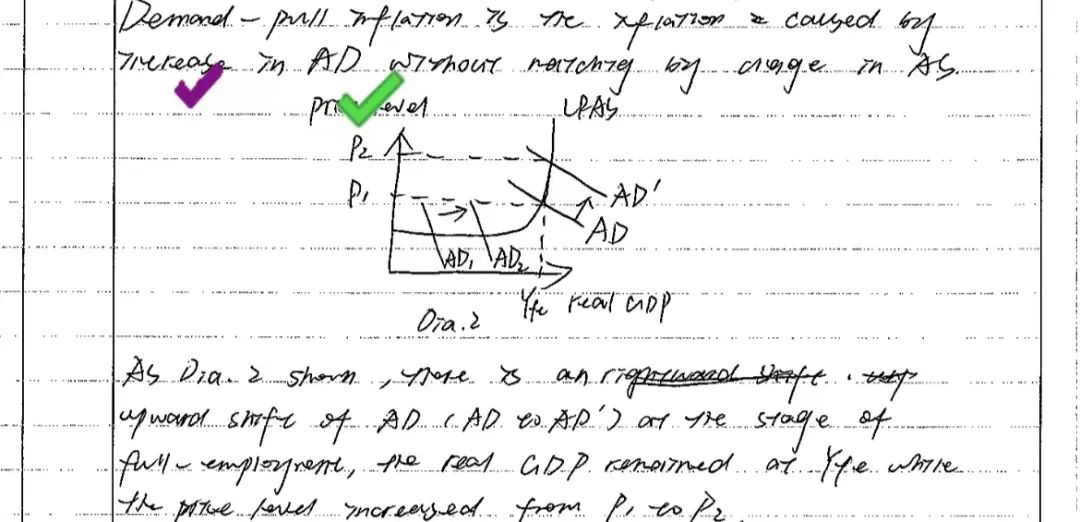 Demand-pull inflation is the inflation caused by
increase in AD without matching by change in AS.
price level
LRAS
P2
P1
AD'
AD
AD1
AD2
Yfe
real GDP
Dia.2
As Dia. 2 shown, there is an rightward shift.
upward shift of AD (AD to AD') at the stage of
full-employment, the real GDP remained at Yfe while
the price level increased from P1 to P2